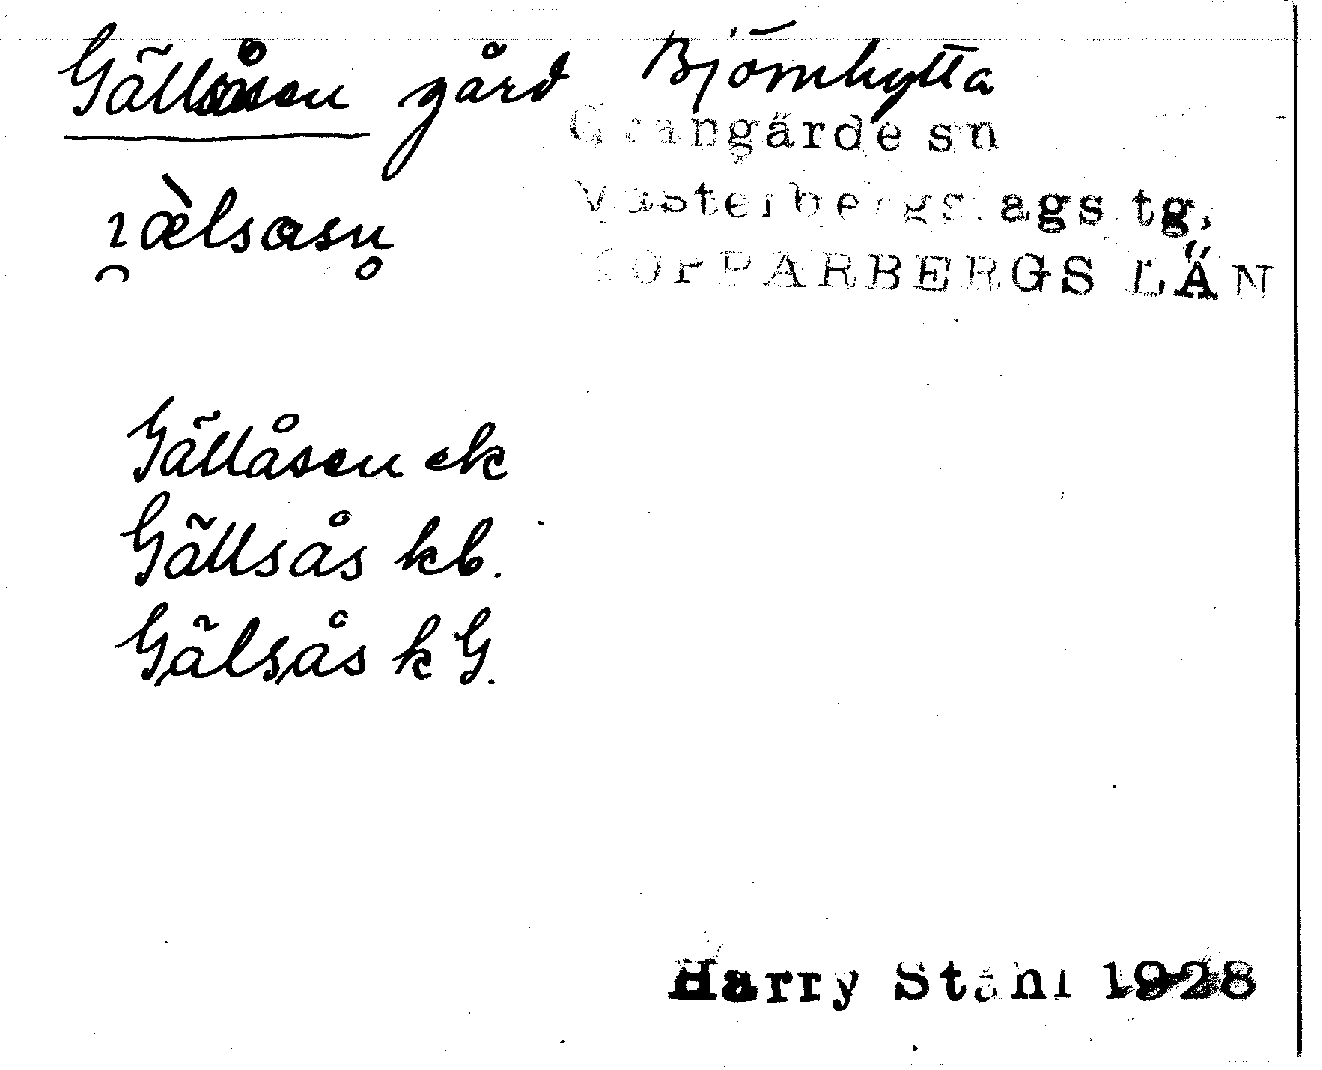 Gällåsen gård Björnhytta
Grangärde sn
Västerbergslags tg,
KOPPARBERGS LÄN
Gällåsen ek
Gällsås kb.
Gälsås k G.
Harry Ståhl 1928